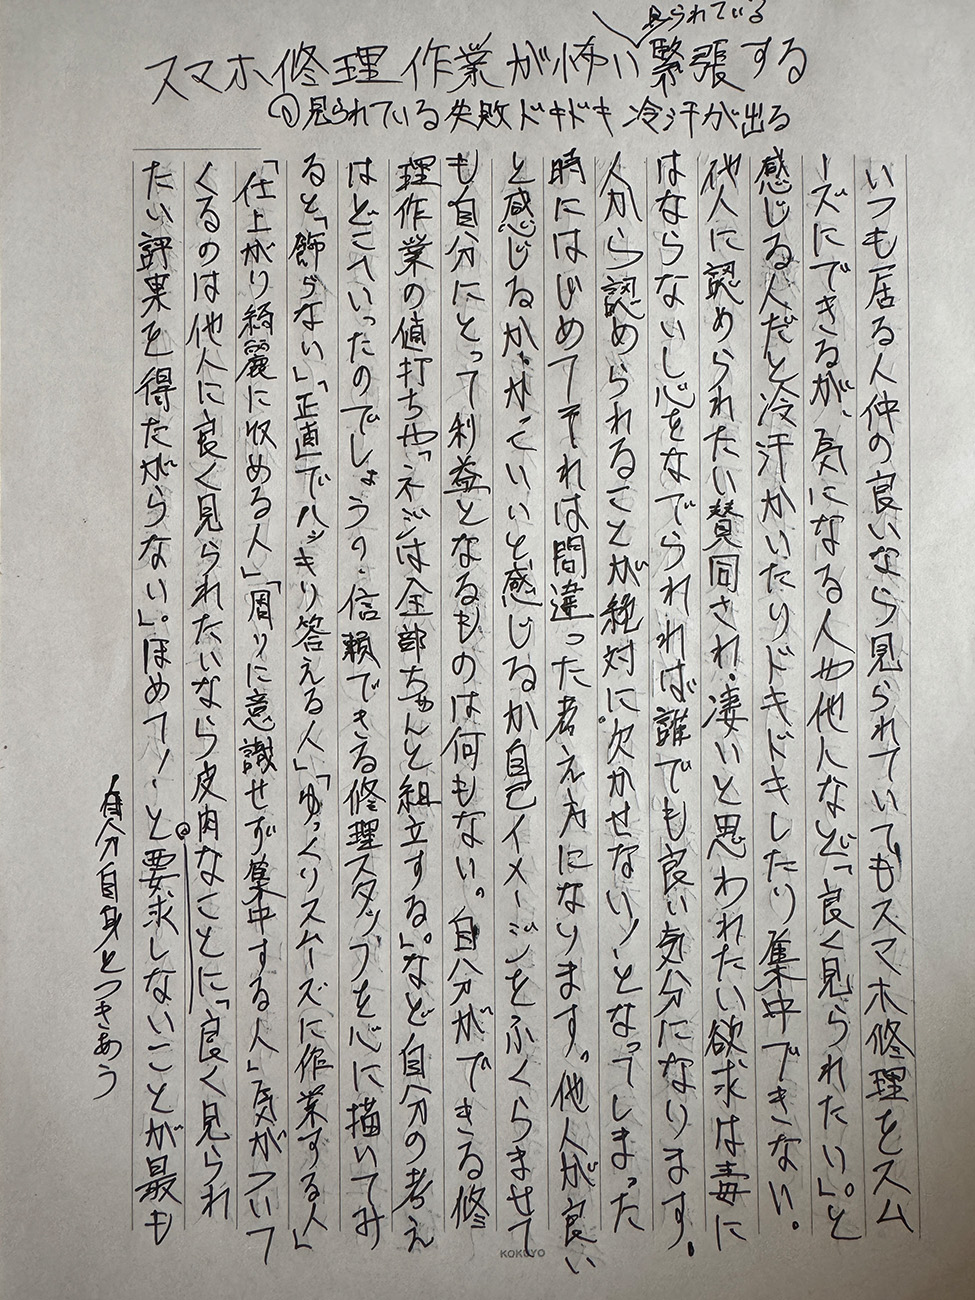 見られている
スマホ修理作業が怖い緊張する
①見られている失敗ドキドキ 冷汗が出る
いつも居る人仲の良いなら見られていてもスマホ修理をスム
ーズにできるが、気になる人や他人など「良く見られたい」。と
感じる人だと冷汗かいたりドキドキしたり集中できない。
他人に認められたい賛同され、凄いと思われたい欲求は毒に
はならないし心をなでられれば誰でも良い気分になります。
人から認められることが絶対に欠かせない!となってしまった
時にはじめてそれは間違った考え方になります。他人が良い
と感じるか、かっていいと感じるか自己イメージをふくらませて
も自分にとって利益となるものは何もない。自分ができる修
理作業の値打ちや「ネジは全部ちゃんと組立する」。など自分の考え
はどこへいったのでしょう?・信頼できる修理スタッフを心に描いてみ
ると「飾らない」「正直でハッキリ答える人」「ゆっくりスムーズに作業する人」
「仕上がり綺麗に収める人」「周りに意識せず集中する人」気がついて
くるのは他人に良く見られたいなら皮肉なことに「良く見られ
たい評果を得たがらない」。ほめて!!と要求しないことが最も
自分自身とつきあう
KOKUYO